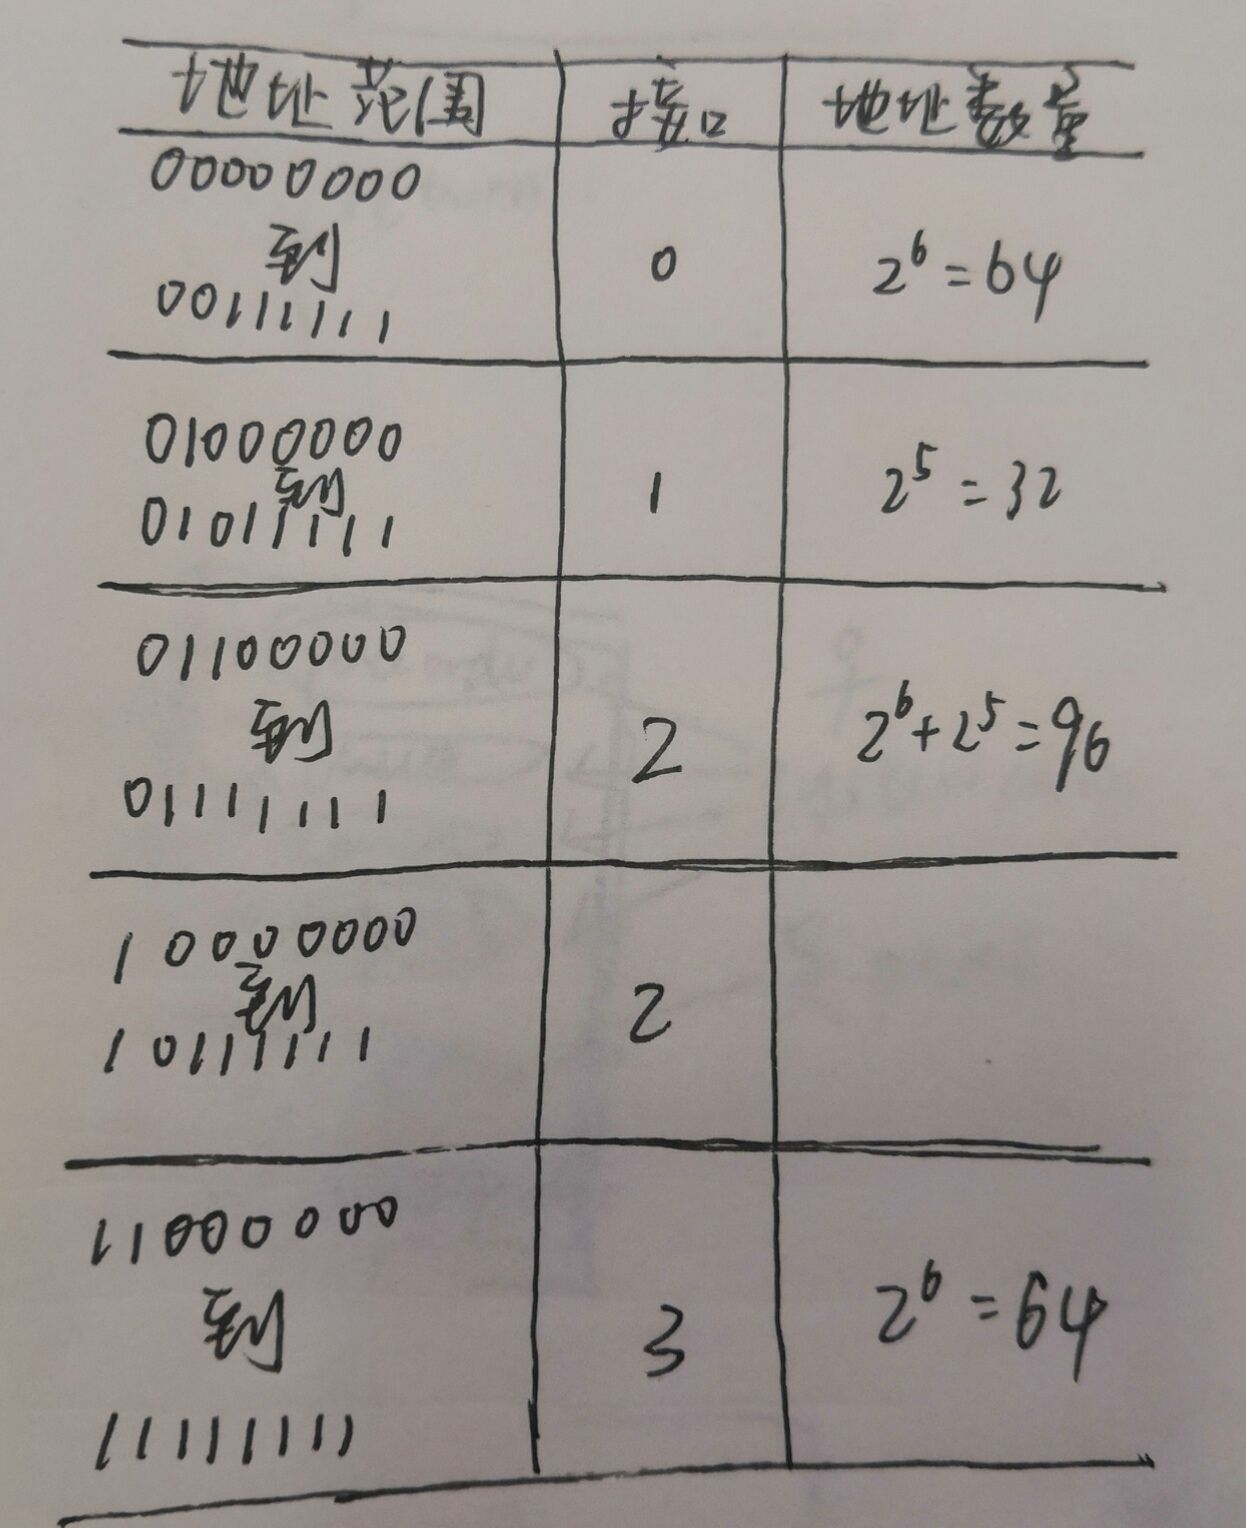 地址范围 接口 地址数量
00000000
到
00111111
0
2^6=64
01000000
到
01011111
1
2^5=32
01100000
到
01111111
2
2^6+2^5=96
10000000
到
10111111
2
11000000
到
11111111
3
2^6=64